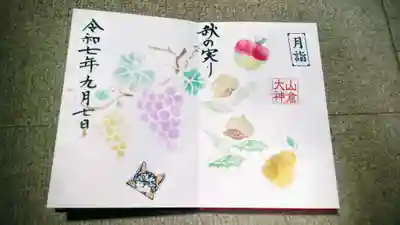 月詣
山倉
大神
秋の実り
令和七年九月七日